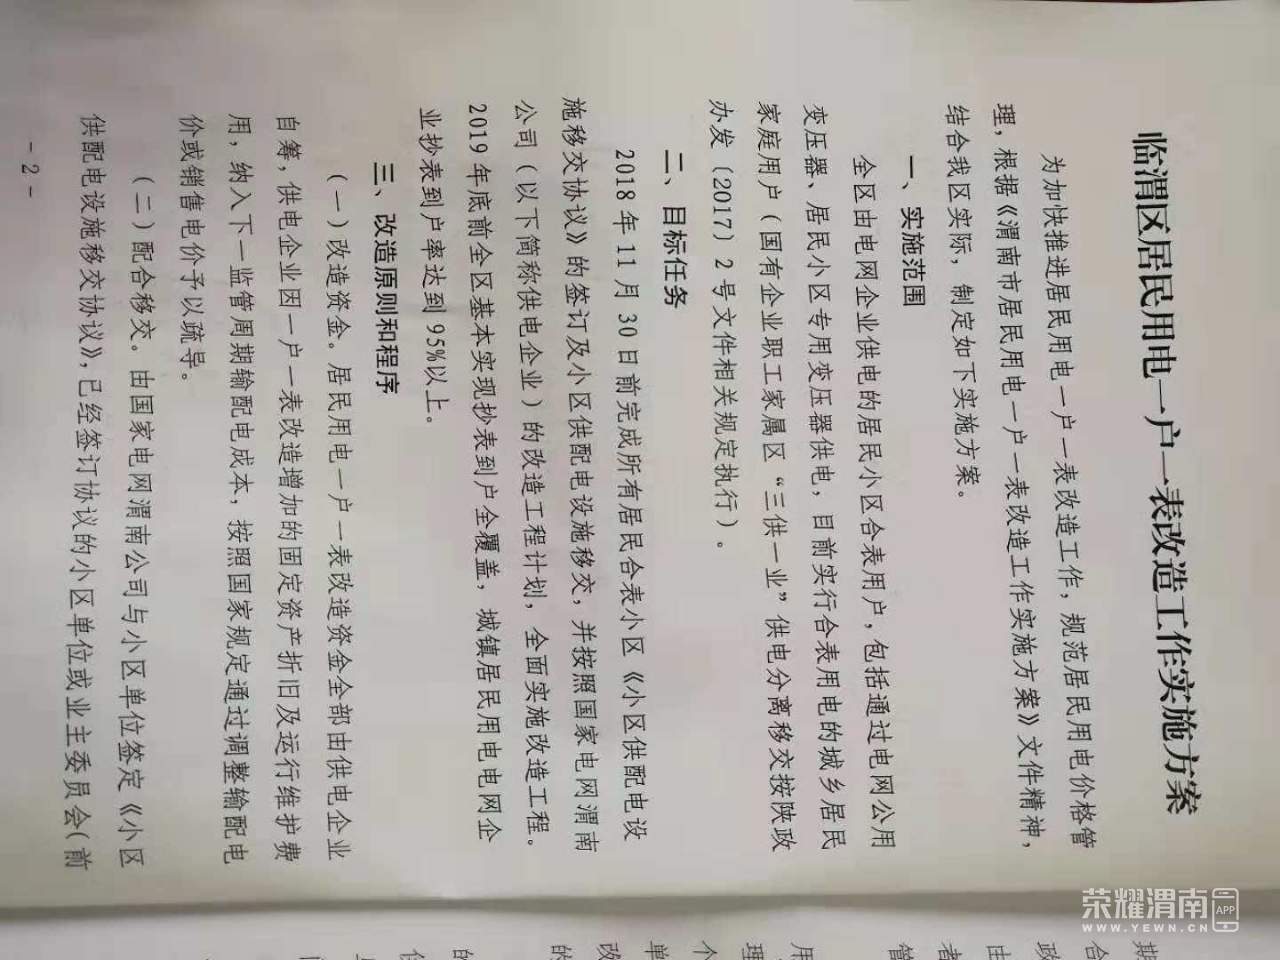 临渭区居民用电一户一表改造工作实施方案
为加快推进居民用电一户一表改造工作，规范居民用电价格管
理，根据《渭南市居民用电一户一表改造工作实施方案》文件精神，
结合我区实际，制定如下实施方案。
一、实施范围
全区由电网企业供电的居民小区合表用户，包括通过电网公用
变压器、居民小区专用变压器供电，目前实行合表用电的城乡居民
家庭用户（国有企业职工家属区“三供一业”供电分离移交按陕政
办发〔2017〕2号文件相关规定执行）。
二、目标任务
2018年11月30日前完成所有居民合表小区《小区供配电设
施移交协议》的签订及小区供配电设施移交，并按照国家电网渭南
公司（以下简称供电企业）的改造工程计划，全面实施改造工程。
2019年底前全区基本实现抄表到户全覆盖，城镇居民用电电网企
业抄表到户率达到95%以上。
三、改造原则和程序
（一）改造资金。居民用电一户一表改造资金全部由供电企业
自筹，供电企业因一户一表改造增加的固定资产折旧及运行维护费
用，纳入下一监管周期输配电成本，按照国家规定通过调整输配电
价或销售电价予以疏导。
（二）配合移交。由国家电网渭南公司与小区单位签定《小区
供配电设施移交协议》，已经签订协议的小区单位或业主委员会（前
- 2 -
期
合
政
由
者
管
用
理
个
单
改
的
的
荣耀渭南 APP
WWW.YEWN.CN